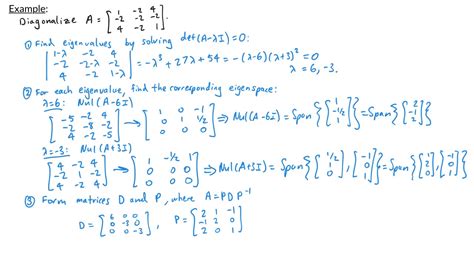 Example:
Diagonalize A = [1 -2 4; -2 -2 -2; 4 -2 1].
① Find eigenvalues by solving det(A-λI)=0:
|1-λ -2 4; -2 -2-λ -2; 4 -2 1-λ| = -λ³+27λ+54 = -(λ-6)(λ+3)² = 0
λ = 6, -3.
② For each eigenvalue, find the corresponding eigenspace:
λ=6: Nul(A-6I)
[-5 -2 4; -2 -8 -2; 4 -2 -5] → [1 0 -1; 0 1 1/2; 0 0 0] ⇒ Nul(A-6I) = Span{[1; -1/2; 1]} = Span{[2; -1; 2]}
λ=-3: Nul(A+3I)
[4 -2 4; -2 1 -2; 4 -2 4] → [1 -1/2 1; 0 0 0; 0 0 0] ⇒ Nul(A+3I) = Span{[1/2; 1; 0], [-1; 0; 1]} = Span{[1; 2; 0], [-1; 0; 1]}
③ Form matrices D and P, where A=PDP⁻¹
D = [6 0 0; 0 -3 0; 0 0 -3], P = [2 1 -1; -1 2 0; 2 0 1]